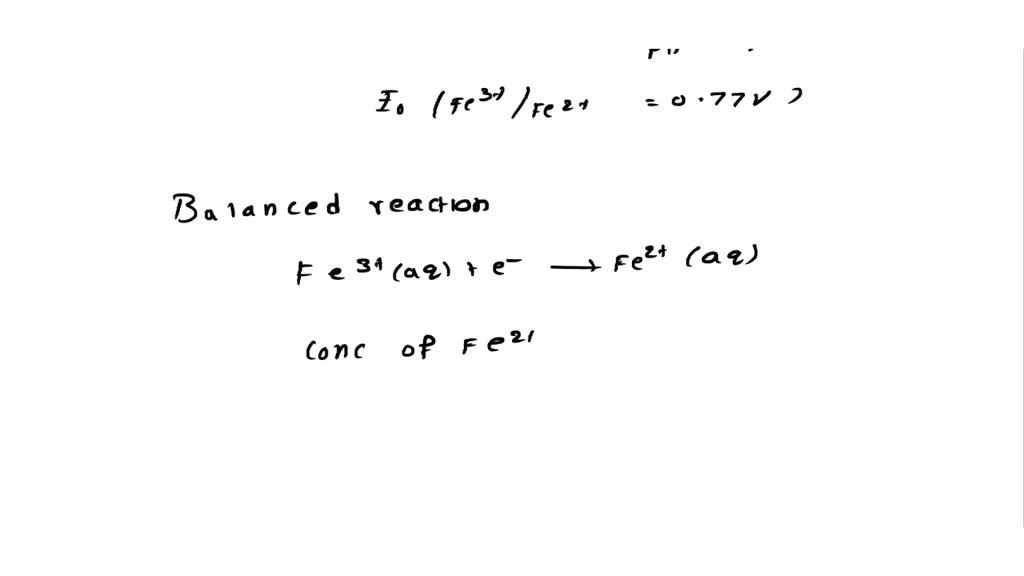 E₀ (Fe³⁺)/Fe²⁺ = 0.77V )
Balanced reaction
Fe³⁺(aq) + e⁻ → Fe²⁺ (aq)
Conc of Fe²⁺